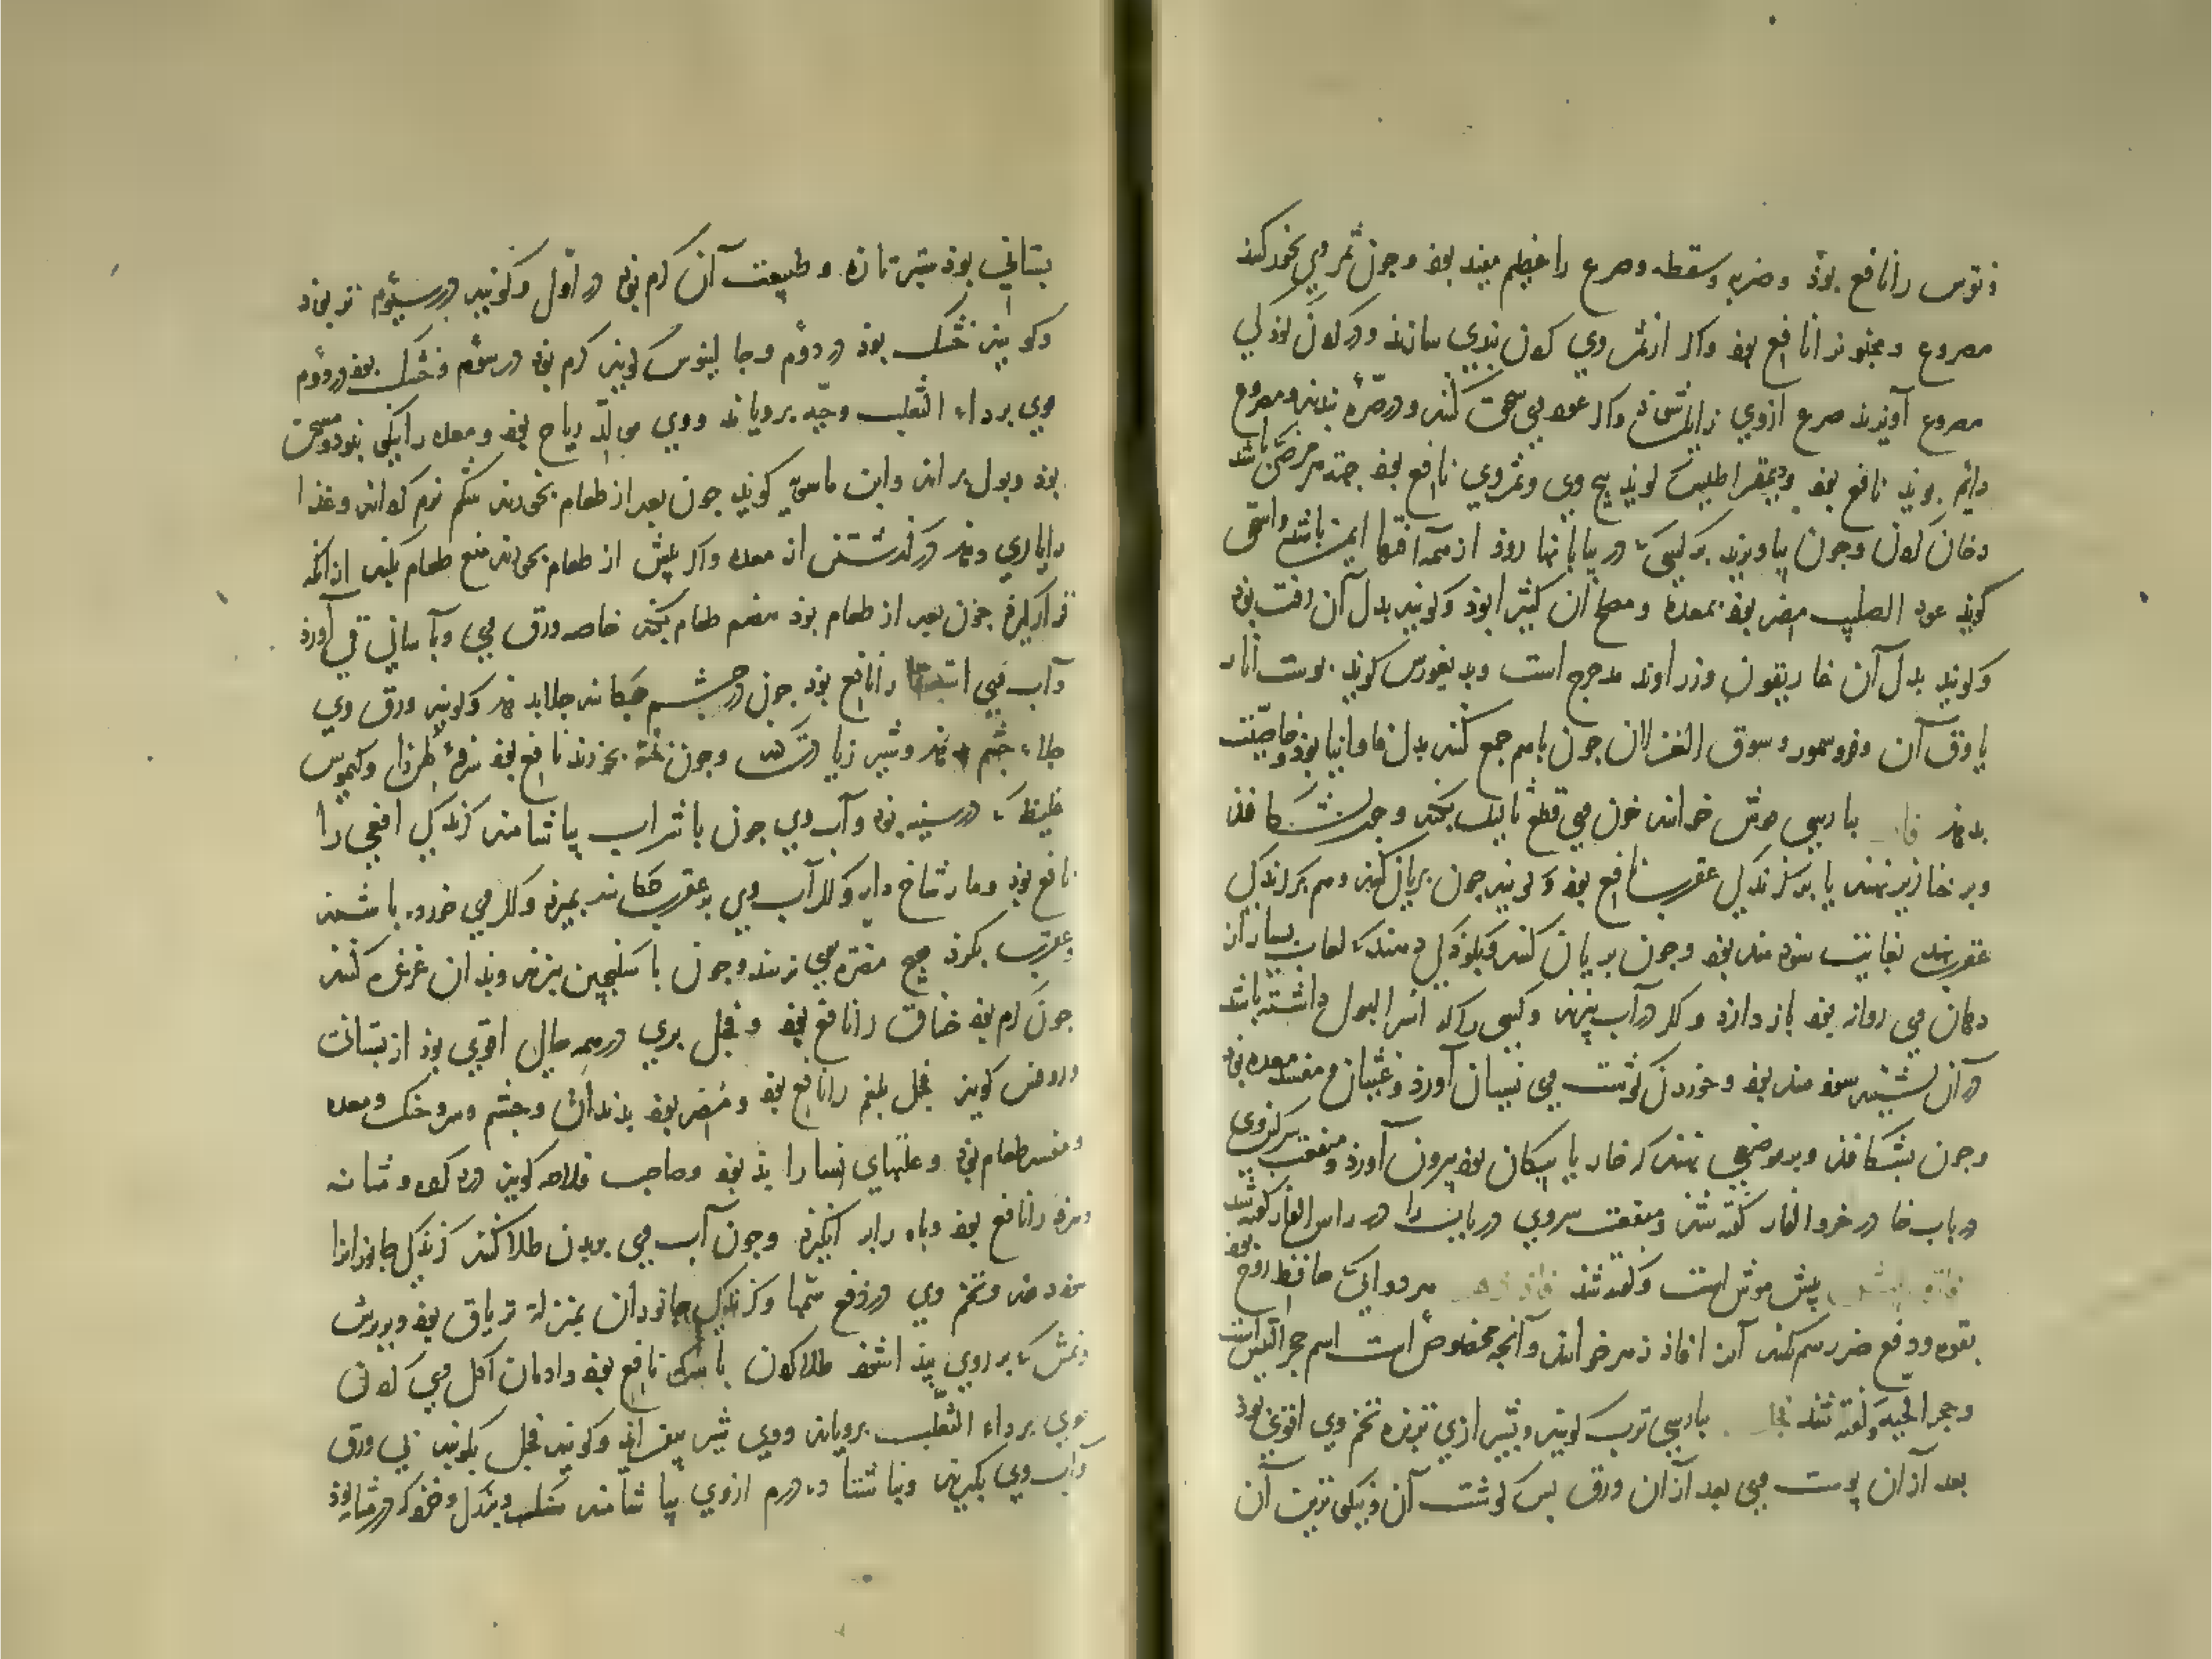 و نقرس را نافع بوذ و ضربه و سقطه و صرع را عظیم مفید بوذ و چون ثمر وی بخور کنند
مصروع و مجنون را نافع بوذ و اکر از ثمر وی کردن بندی سازند و در کردن کوذکی
مصروع آویزند صرع ازوی زایل شوذ و اکر عود وی سحق کنند و در صره بندند و مصروع
دایم بویذ نافع بوذ و دیمقراطیس کویذ بیخ وی و ثمر وی نافع بوذ جهت هر مرضی باشد
دخان کردن و چون بیاویزند بر کسی که در بیابانها روذ از همه آفتها ایمن باشد و اسحق
کویذ عود الصلیب مضر بوذ بمعده و مصلح آن کثیرا بوذ و کویند بدل آن زفت بوذ
و کویند بدل آن غاریقون و زراوند مدحرج است و دیسقوریدس کویذ پوست انار
با ورق آن و فرو سمور و سوق الغزلان چون باهم جمع کنند بدل فاوانیا بوذ و خاصیت
بدهد فار بپارسی موش خوانند خون وی قطع ثالیل بکند و چون بشکافند
و بر خنازیر نهند یا بر کزندکی عقرب نافع بوذ و کویند چون بریان کنند و هم بر کزندکی
عقرب نهند بغایت سودمند بوذ و چون بریان کنند و بکوذکی دهند که لعاب بسیار از
دهان وی روانه بوذ باز دارد و اکر در آب بپزند و کسی را که اسر البول داشته باشد
در آن نشیند سودمند بوذ و خوردن کوشت وی نسیان آورد و غثیان و مفسد معده بوذ
و چون بشکافند و بر موضعی نهند که خار یا پیکان بوذ بیرون آورد و منفعت سرکین وی
در باب خا در خرو الفار کفته شد و منفعت سر وی در باب را در راس الفار کفته شد
بیش موش است و کفته شد فادزهر هر دوایی که حافظ روح بوذ
بقوه و دفع ضرر سم کند آنرا فادزهر خوانند و آنچه مخصوص است اسم حجر التیس است
و حجر الحیه و کفته شد فجل بپارسی ترب کویند و بهترین اجزای تخم وی اقوی بوذ
بعد از آن پوست وی بعد از آن ورق پس کوشت آن و نیکوترین آن
بستانی بوذ شیرین تازه و طبیعت آن کرم بوذ در اول و کویند در سیوم تر بوذ
و کویند خشک بوذ در دوم و جالینوس کویذ کرم بوذ در سوم و خشک بوذ در دوم
موی بر داء الثعلب وحیه برویاند و وی مولد ریاح بوذ و معده را نیکی بنوذ و مسخن
بوذ و بول براند و ابن ماسویه کویذ چون بعد از طعام بخورند شکم نرم کرداند و غذا
را یاری دهد در کذشتن از معده و اکر پیش از طعام بخورند منع طعام بکند از آنکه
قرار کیرد چون بعد از طعام بوذ هضم طعام بکند خاصه ورق وی و بآسانی قی آورد
و آب وی استسقا را نافع بوذ چون در چشم چکانند جلا بدهد و کویند ورق وی
جلاء چشم بدهد و شیر زیادت کند و چون پخته بخورند نافع بوذ سرفه کهن را و کیموس
غلیظ که در سینه بوذ و آب وی چون با شراب بیاشامند کزندکی افعی را
نافع بوذ و مار شاخ دار و اکر آب وی بر عقرب چکانند بمیرد و اکر وی خورده باشند
و عقرب بکزد هیچ مضرة بوی نرسد و چون با سکنجبین بپزند و بدان غرغره کنند
چون کرم بوذ خناق را نافع بوذ و فجل بری در همه حال اقوی بوذ از بستانی
و روفس کویذ فجل بلغم را نافع بوذ و مضر بوذ بدندان و چشم و سر و حنک و معده
و مفسد طعام بوذ و علتهای نسا را بد بوذ و صاحب فلاحه کویذ درد کرده و مثانه
و سرفه را نافع بوذ و باه را بر انکیزد و چون آب وی بر بدن طلا کنند کزندکی جانوران را
سود دهد و تخم وی در دفع سمها و کزندکی جانوران بمنزله تریاق بوذ و بر برش
و نمش که بر روی پیدا شود طلا کردن با سرکه نافع بوذ و ادمان اکل وی کردن
موی بر داء الثعلب برویاند و وی شیر بیفزاید و کویند فجل بکوبند بی ورق
و آب وی بکیرند و ناشتا ده درم ازوی بیاشامند سنک بریزاند و خرد کند که در مثانه بوذ